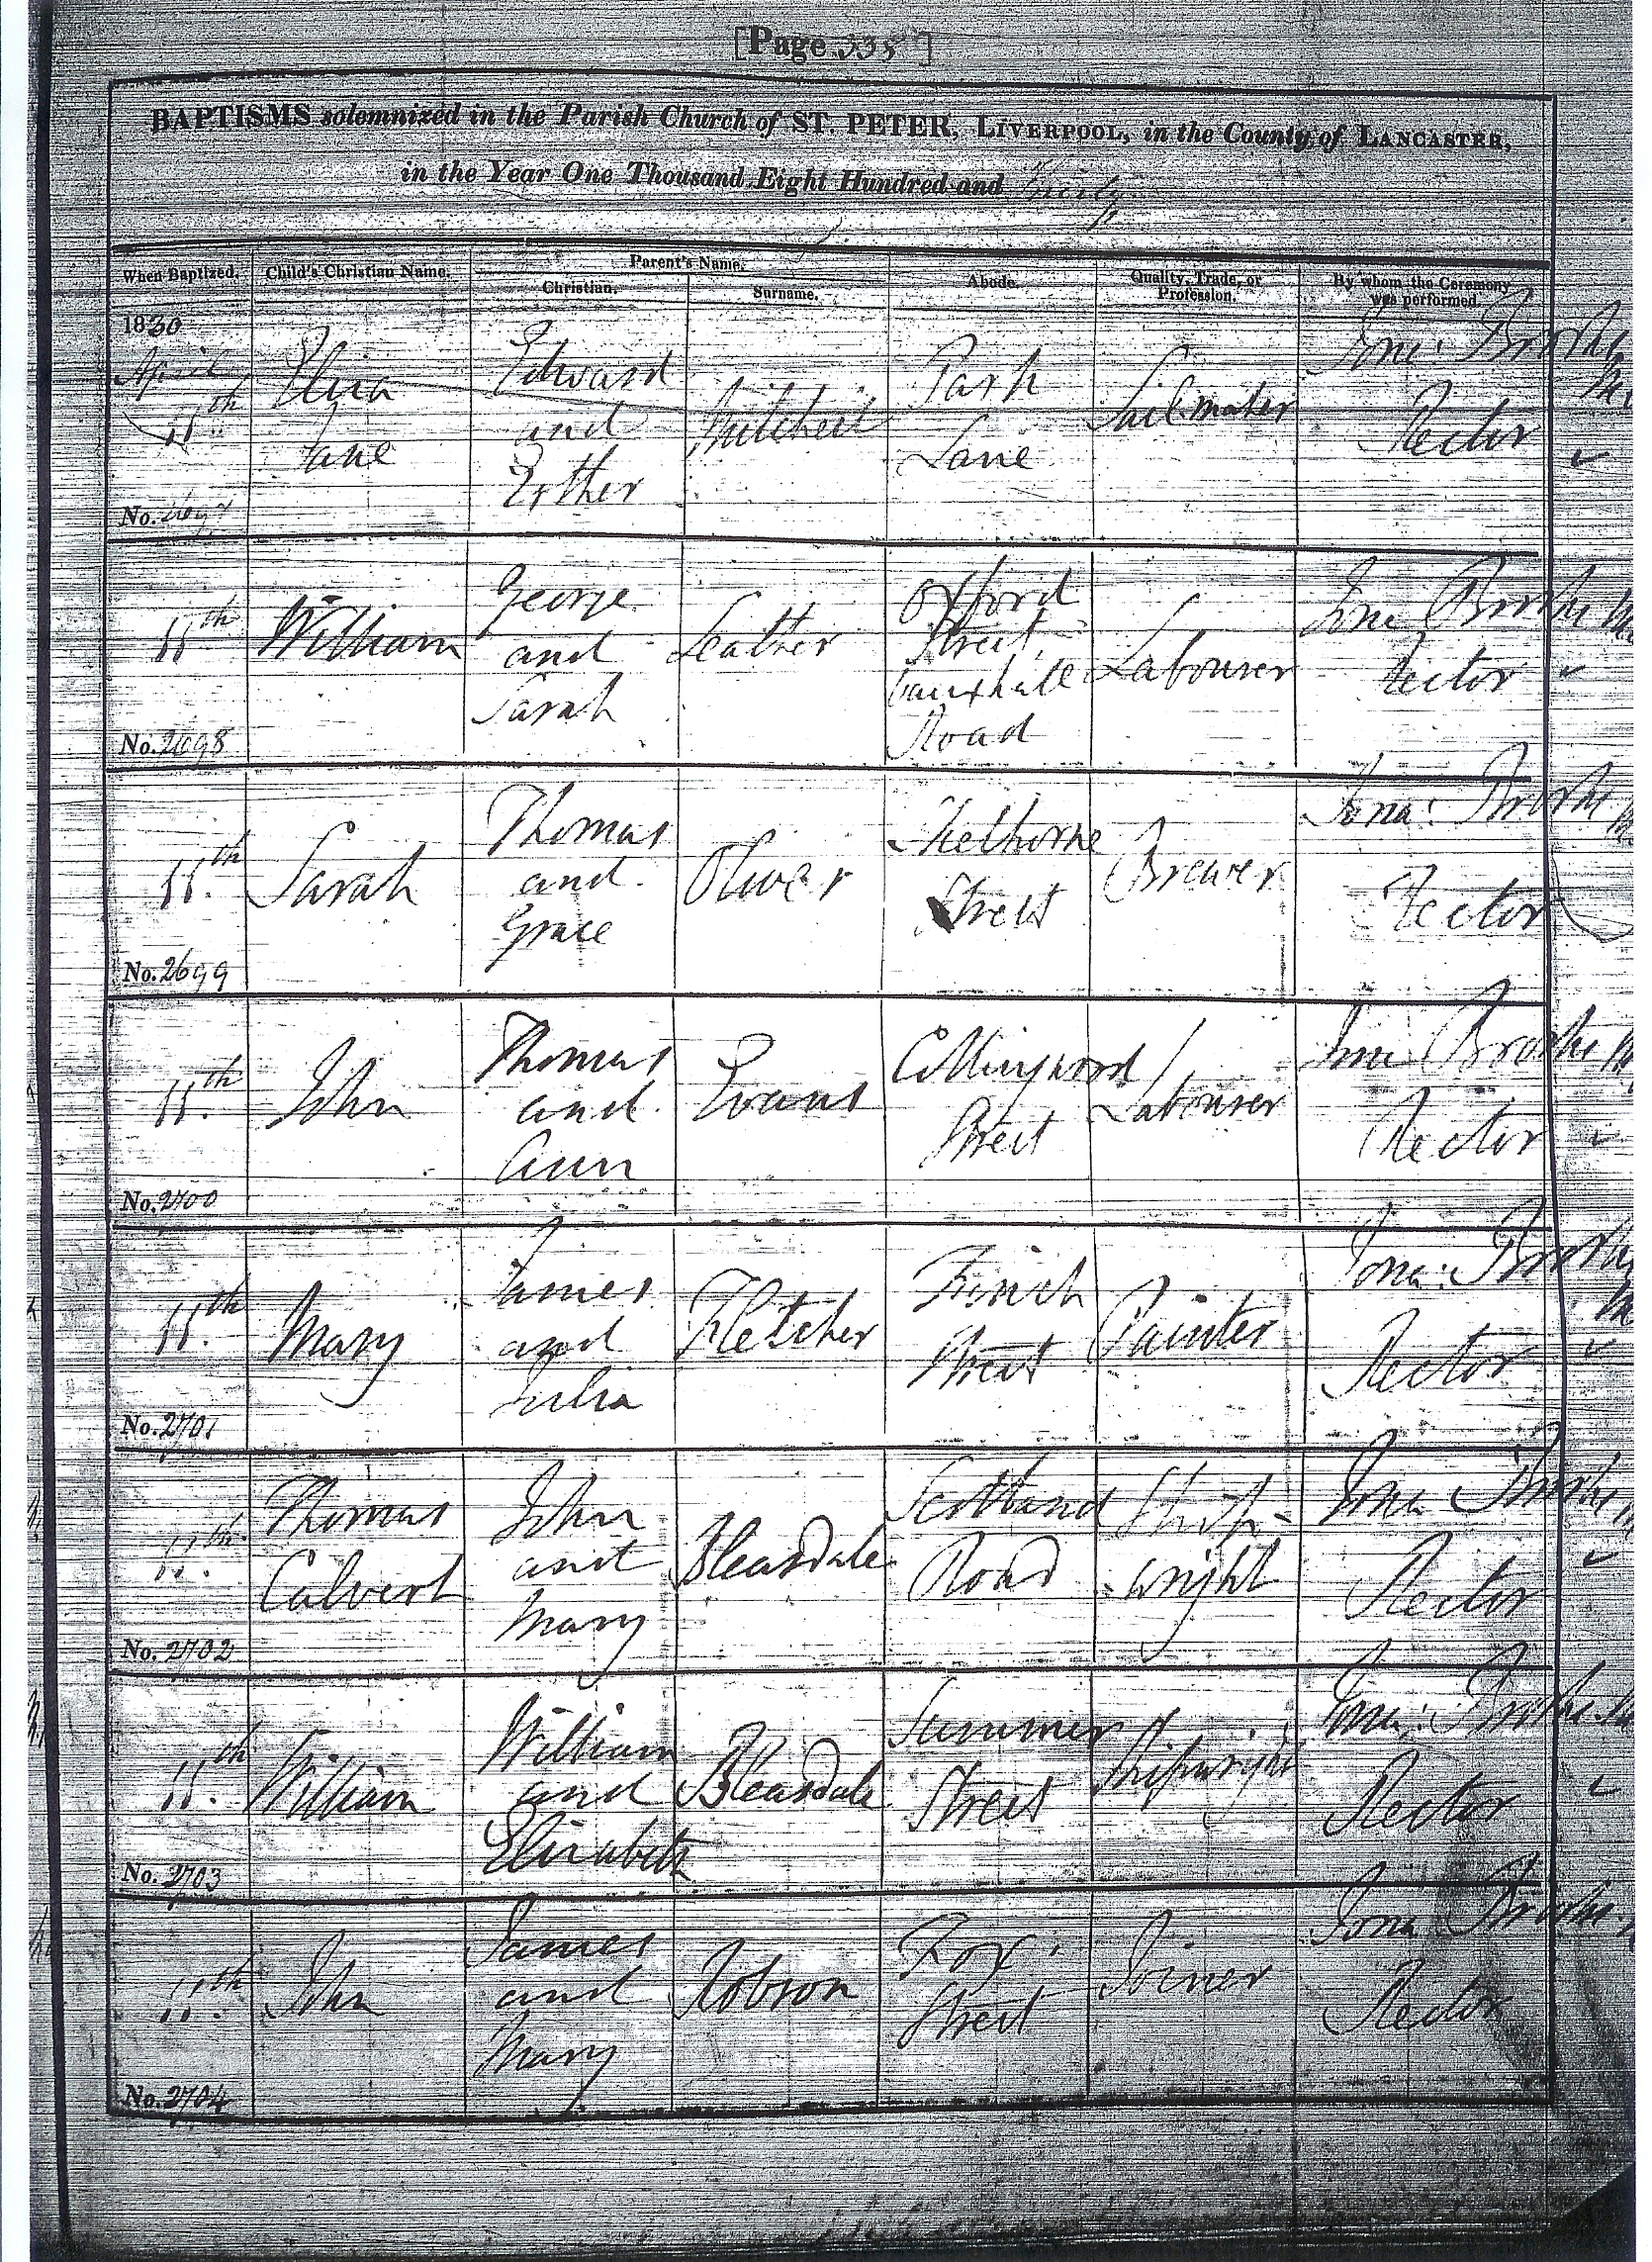 [Page 338]
BAPTISMS solemnized in the Parish Church of ST. PETER, LIVERPOOL, in the County of LANCASTER,
in the Year One Thousand Eight Hundred and Thirty
When Baptized. Child's Christian Name. Parent's Name. Abode. Quality, Trade, or Profession. By whom the Ceremony was performed.
Christian. Surname.
1830
April
11th
Eliza
Jane
Edward
and
Esther
Mitchell
Park
Lane
Sailmaker
Jona: Brooks
Rector
No. 2697
11th
William
George
and
Sarah
Leather
Oxford
Street,
Vauxhall
Road
Labourer
Jona Brooks
Rector
No. 2698
11th
Sarah
Thomas
and
Grace
Oliver
Skelhorne
Street
Brewer
Jona: Brooks
Rector
No. 2699
11th
John
Thomas
and
Ann
Evans
Collingwood
Street
Labourer
Jona Brooks
Rector
No. 2700
11th
Mary
James
and
Julia
Fletcher
Finch
Street
Painter
Jona: Brooks
Rector
No. 2701
11th
Thomas
Calvert
John
and
Mary
Bleasdale
Scotland
Road
Ship-
wright
Jona Brooks
Rector
No. 2702
11th
William
William
and
Elizabeth
Bleasdale
Summer
Street
Shipwright
Jona: Brooks
Rector
No. 2703
11th
John
James
and
Mary
Robson
Fox
Street
Joiner
Jona Brooks
Rector
No. 2704